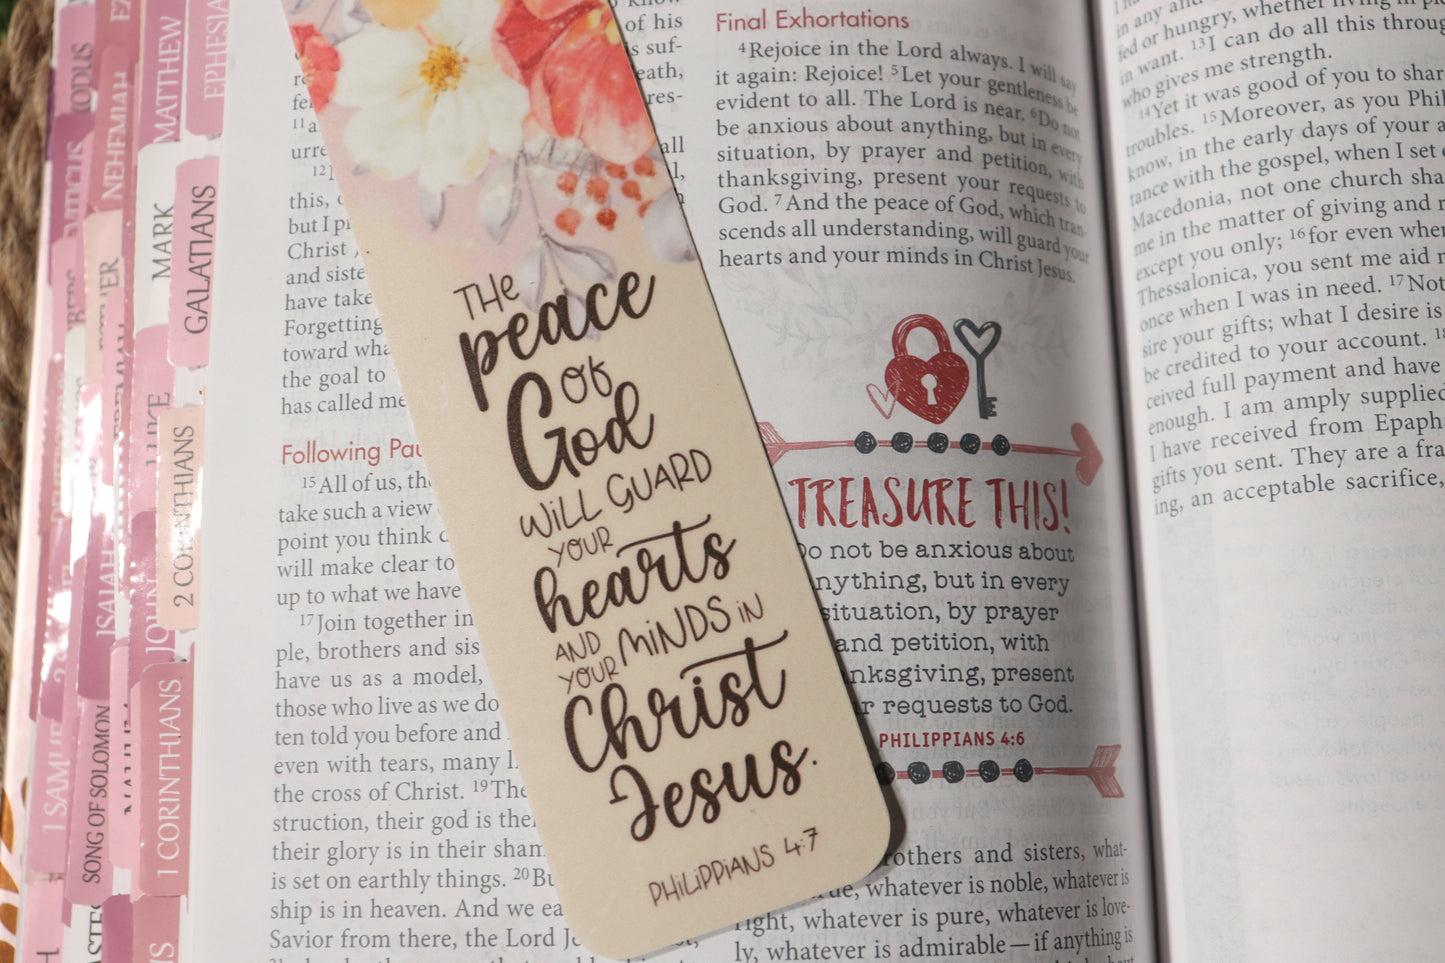 EXODUS
NEHEMIAH
MATTHEW
EPHESIA
MARK
GALATIANS
LUKE
2 CORINTHIANS
ISAIAH
JOHN
1 SAMUE
SONG OF SOLOMON
1 CORINTHIANS
THE
peace
OF
God
WILL GUARD
YOUR
hearts
AND
YOUR MINDS IN
Christ
Jesus.
PHILIPPIANS 4:7
of his
is suf-
eath,
res-
all
11
urre
12
this,
but I
Christ
and siste
have take
Forgetting
toward wha
the goal to
has called me
Following Pau
15All of us, th
take such a view
point you think
will make clear to
up to what we have
17Join together in
ple, brothers and sis
have us as a model,
those who live as we do
ten told you before and
even with tears, many
the cross of Christ. 19The
struction, their god is the
their glory is in their sham
is set on earthly things. 20Bu
ship is in heaven. And we ea
Savior from there, the Lord Je
Final Exhortations
4Rejoice in the Lord always. I will say
it again: Rejoice! 5Let your gentleness be
evident to all. The Lord is near. 6Do not
be anxious about anything, but in every
situation, by prayer and petition, with
thanksgiving, present your requests to
God. 7And the peace of God, which tran-
scends all understanding, will guard your
hearts and your minds in Christ Jesus.
TREASURE THIS!
Do not be anxious about
nything, but in every
situation, by prayer
and petition, with
nksgiving, present
r requests to God.
PHILIPPIANS 4:6
rothers and sisters, what-
ue, whatever is noble, whatever is
right, whatever is pure, whatever is love-
ly, whatever is admirable—if anything is
in any and
fed or hungry, whether living in
in want. 13I can do all this throug
who gives me strength.
14Yet it was good of you to shar
troubles. 15Moreover, as you Phil
know, in the early days of your a
tance with the gospel, when I set
Macedonia, not one church sha
me in the matter of giving and r
except you only; 16for even when
Thessalonica, you sent me aid
once when I was in need. 17Not
sire your gifts; what I desire is
be credited to your account. 18
ceived full payment and have
enough. I am amply supplied
I have received from Epaph
gifts you sent. They are a fra
ing, an acceptable sacrifice,